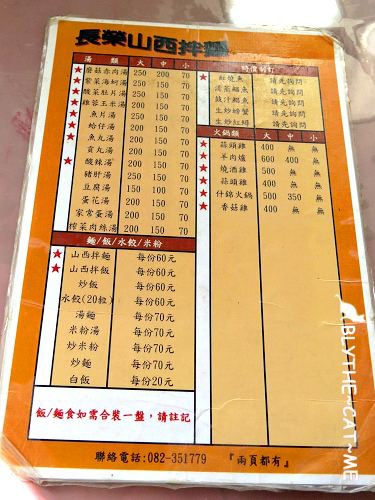 長榮山西拌麵
湯類 大 中 小
★ 磨菇赤肉湯 250 200 70
★ 紫菜海蚵湯 250 200 70
★ 酸菜肚片湯 250 200 70
★ 雞蓉玉米湯 200 150 70
★ 魚片湯 200 150 70
蛤仔湯 200 150 70
★ 魚丸湯 200 150 70
貢丸湯 200 150 70
★ 酸辣湯 200 150 70
豬肝湯 200 150 70
豆腐湯 150 100 50
蛋花湯 200 150 70
家常蛋湯 200 150 70
榨菜肉絲湯 200 150 70
麵/飯/水餃/米粉
★ 山西拌麵 每份60元
★ 山西拌飯 每份60元
炒飯 每份60元
水餃(20粒) 每份60元
湯麵 每份70元
米粉湯 每份70元
炒米粉 每份70元
炒麵 每份70元
白飯 每份20元
飯/麵食如需合裝一盤,請註記
★ 紅燒魚 請先詢問
清蒸鯧魚 請先詢問
豉汁鯧魚 請先詢問
生炒螃蟹 請先詢問
生炒紅蟳 請先詢問
火鍋類 大 中 小
★ 蒜頭雞 400 無 無
★ 羊肉爐 600 400 無
★ 燒酒雞 400 無 無
★ 蒜頭雞 400 無 無
★ 什錦火鍋 500 350 無
★ 香菇雞 400 無 無
聯絡電話:082-351779 『兩頁都有』
BLYTHE~CAT~ME